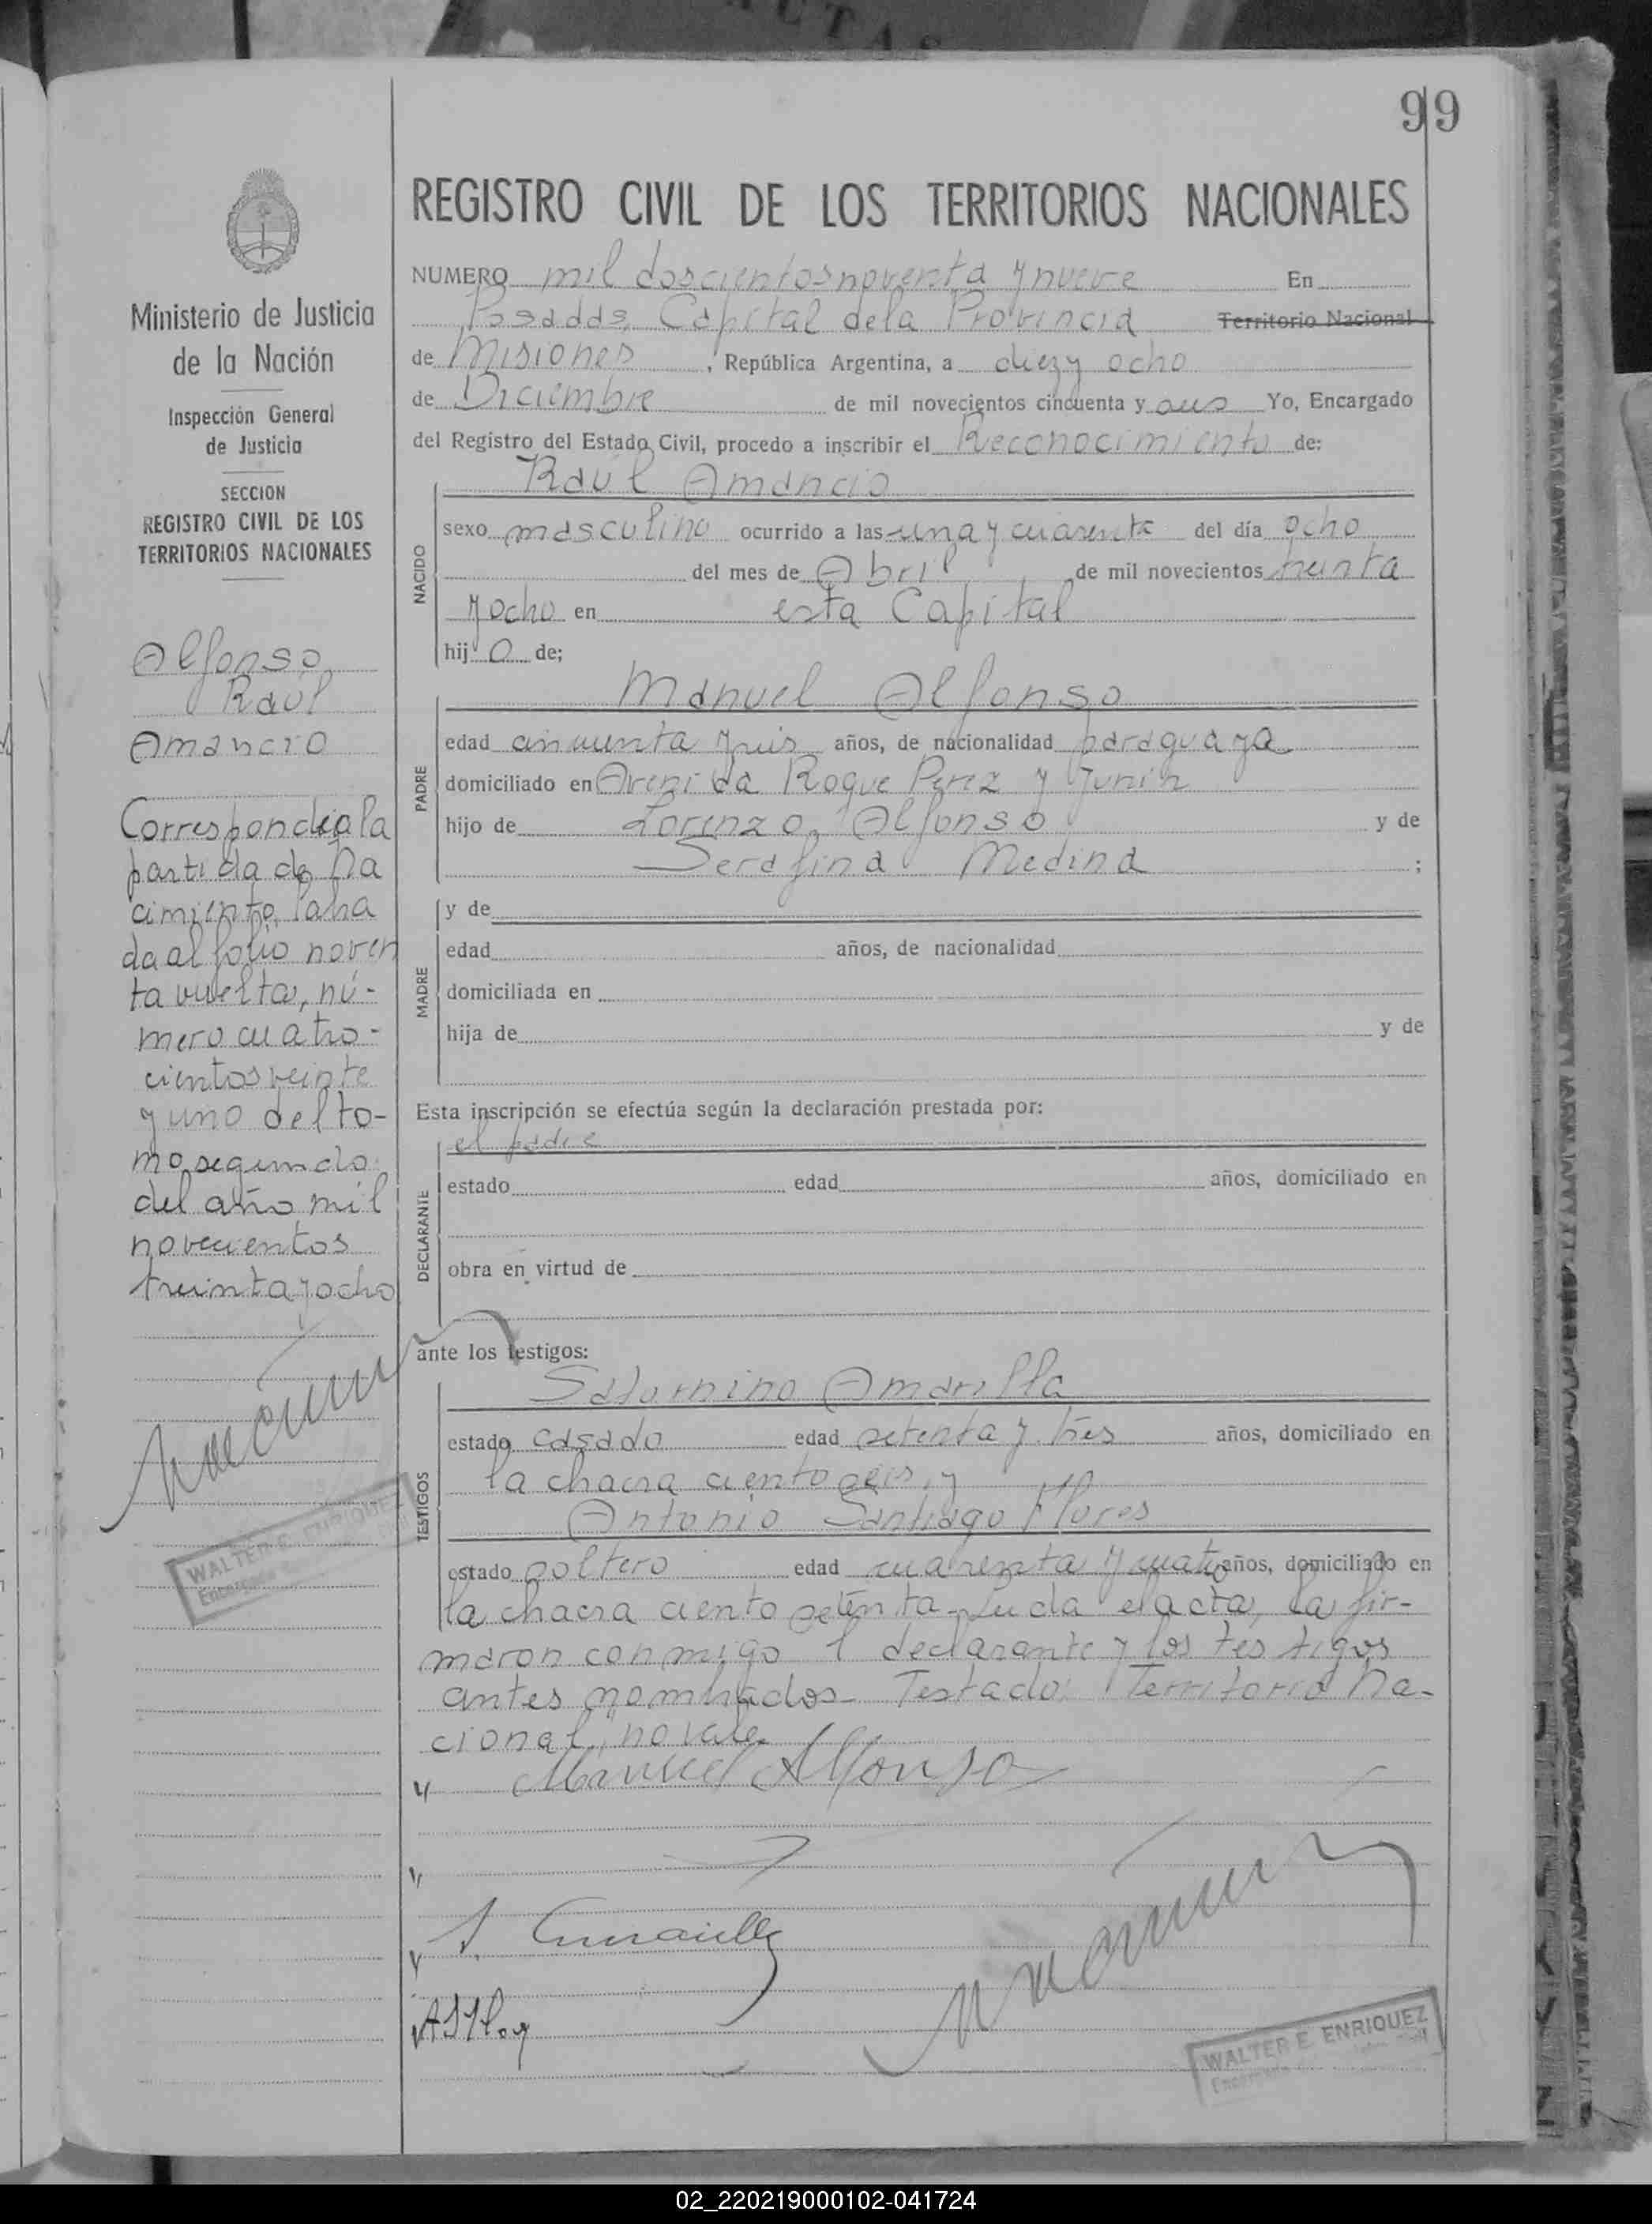 99
REGISTRO CIVIL DE LOS TERRITORIOS NACIONALES
NUMERO mil doscientos noventa y nueve En
Posadas, Capital de la Provincia Territorio Nacional
de Misiones, República Argentina, a diez y ocho
de Diciembre de mil novecientos cincuenta y seis Yo, Encargado
del Registro del Estado Civil, procedo a inscribir el Reconocimiento de:
Raúl Amancio
NACIDO
sexo masculino ocurrido a las una y cuarenta del día ocho
del mes de Abril de mil novecientos treinta
y ocho en esta Capital
hijo de;
PADRE
Manuel Alfonso
edad cincuenta y seis años, de nacionalidad paraguaya
domiciliado en Avenida Roque Perez y Junin
hijo de Lorenzo Alfonso y de
Serafina Medina ;
MADRE
y de
edad años, de nacionalidad
domiciliada en
hija de y de
Esta inscripción se efectúa según la declaración prestada por:
DECLARANTE
el padre
estado edad años, domiciliado en
obra en virtud de
ante los testigos:
TESTIGOS
Saturnino Amarilla
estado casado edad setenta y tres años, domiciliado en
la chacra ciento seis, y
Antonio Santiago Flores
estado soltero edad cuarenta y cuatro años, domiciliado en
la chacra ciento setenta. Leida el acta, la fir-
maron conmigo l declarante y los testigos
antes nominados - Testado: Territorio Na-
cional, no vale
Manuel Alfonso
S. Amarilla
WALTER E. ENRIQUEZ
Ministerio de Justicia
de la Nación
Inspección General
de Justicia
SECCION
REGISTRO CIVIL DE LOS
TERRITORIOS NACIONALES
Alfonso
Raúl
Amancio
Corresponde a la
partida de Na
cimiento
da al folio noven
ta vuelta, nú-
mero cuatro-
cientos veinte
y uno del to-
mo segundo
del año mil
novecientos
treinta y ocho
WALTER E. ENRIQUEZ
02_220219000102-041724